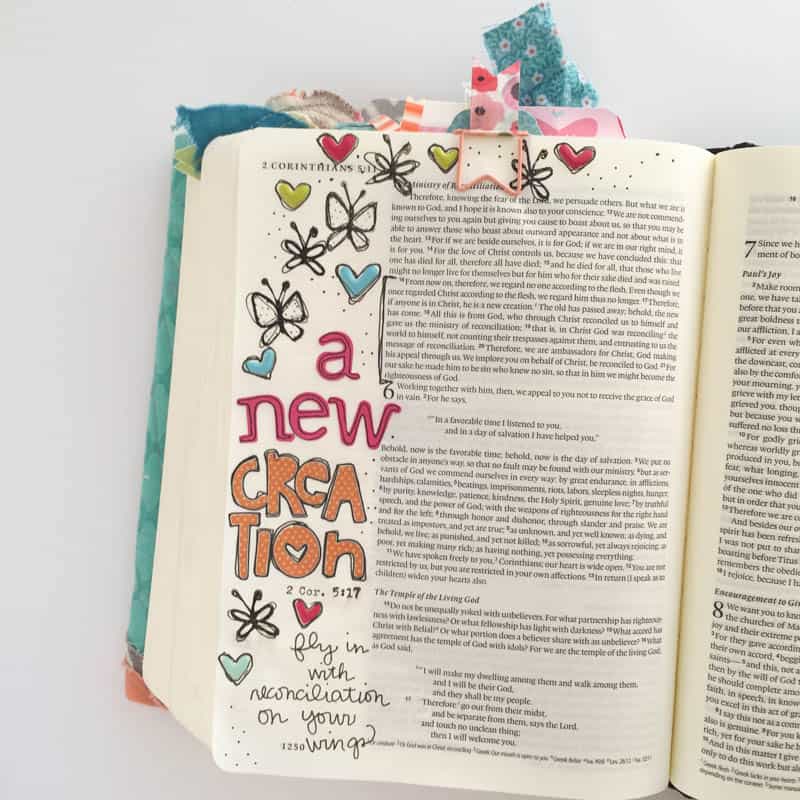 2 CORINTHIANS 5:11
Ministry of Reconciliation
Therefore, knowing the fear of the Lord, we persuade others. But what we are is
known to God, and I hope it is known also to your conscience. 12 We are not commend-
ing ourselves to you again but giving you cause to boast about us, so that you may be
able to answer those who boast about outward appearance and not about what is in
the heart. 13 For if we are beside ourselves, it is for God; if we are in our right mind, it
is for you. 14 For the love of Christ controls us, because we have concluded this: that
one has died for all, therefore all have died; 15 and he died for all, that those who live
might no longer live for themselves but for him who for their sake died and was raised.
16 From now on, therefore, we regard no one according to the flesh. Even though we
once regarded Christ according to the flesh, we regard him thus no longer. 17 Therefore,
if anyone is in Christ, he is a new creation. The old has passed away; behold, the new
has come. 18 All this is from God, who through Christ reconciled us to himself and
gave us the ministry of reconciliation; 19 that is, in Christ God was reconciling the
world to himself, not counting their trespasses against them, and entrusting to us the
message of reconciliation. 20 Therefore, we are ambassadors for Christ, God making
his appeal through us. We implore you on behalf of Christ, be reconciled to God. 21 For
our sake he made him to be sin who knew no sin, so that in him we might become the
righteousness of God.
6 Working together with him, then, we appeal to you not to receive the grace of God
in vain. 2 For he says,
"In a favorable time I listened to you,
and in a day of salvation I have helped you."
Behold, now is the favorable time; behold, now is the day of salvation. 3 We put no
obstacle in anyone's way, so that no fault may be found with our ministry, 4 but as ser-
vants of God we commend ourselves in every way: by great endurance, in afflictions,
hardships, calamities, 5 beatings, imprisonments, riots, labors, sleepless nights, hunger;
6 by purity, knowledge, patience, kindness, the Holy Spirit, genuine love; 7 by truthful
speech, and the power of God; with the weapons of righteousness for the right hand
and for the left; 8 through honor and dishonor, through slander and praise. We are
treated as impostors, and yet are true; 9 as unknown, and yet well known; as dying, and
behold, we live; as punished, and yet not killed; 10 as sorrowful, yet always rejoicing; as
poor, yet making many rich; as having nothing, yet possessing everything.
11 We have spoken freely to you, Corinthians; our heart is wide open. 12 You are not
restricted by us, but you are restricted in your own affections. 13 In return (I speak as to
children) widen your hearts also.
The Temple of the Living God
14 Do not be unequally yoked with unbelievers. For what partnership has righteous-
ness with lawlessness? Or what fellowship has light with darkness? 15 What accord has
Christ with Belial? Or what portion does a believer share with an unbeliever? 16 What
agreement has the temple of God with idols? For we are the temple of the living God;
as God said,
"I will make my dwelling among them and walk among them,
and I will be their God,
and they shall be my people.
Therefore go out from their midst,
and be separate from them, says the Lord,
and touch no unclean thing;
then I will welcome you,
a
new
CREA
TION
2 Cor. 5:17
fly in
with
reconciliation
on your
wings
1250
7 Since we h
ment of bo
Paul's Joy
2 Make room
one, we have ta
before that you a
great boldness t
our affliction, I a
5 For even wh
afflicted at every
the downcast, co
also by the comfo
your mourning, y
grieve with my le
grieved you, thou
but because you w
suffered no loss thr
10 For godly grie
whereas worldly gr
produced in you, bu
fear, what longing,
yourselves innocent
of the one who did
but in order that you
Therefore we are c
And besides our o
spirit has been refres
I was not put to shan
boasting before Titus
remembers the obedie
I rejoice, because I ha
Encouragement to Giv
8 We want you to know
the churches of Mac
joy and their extreme p
3 For they gave accordin
their own accord, 4 begg
saints— 5 and this, not a
then by the will of God t
he should complete amo
faith, in speech, in know
you excel in this act of gr
8 I say this not as a comm
also is genuine. 9 For you k
rich, yet for your sake he b
10 And in this matter I give
only to do this work but als